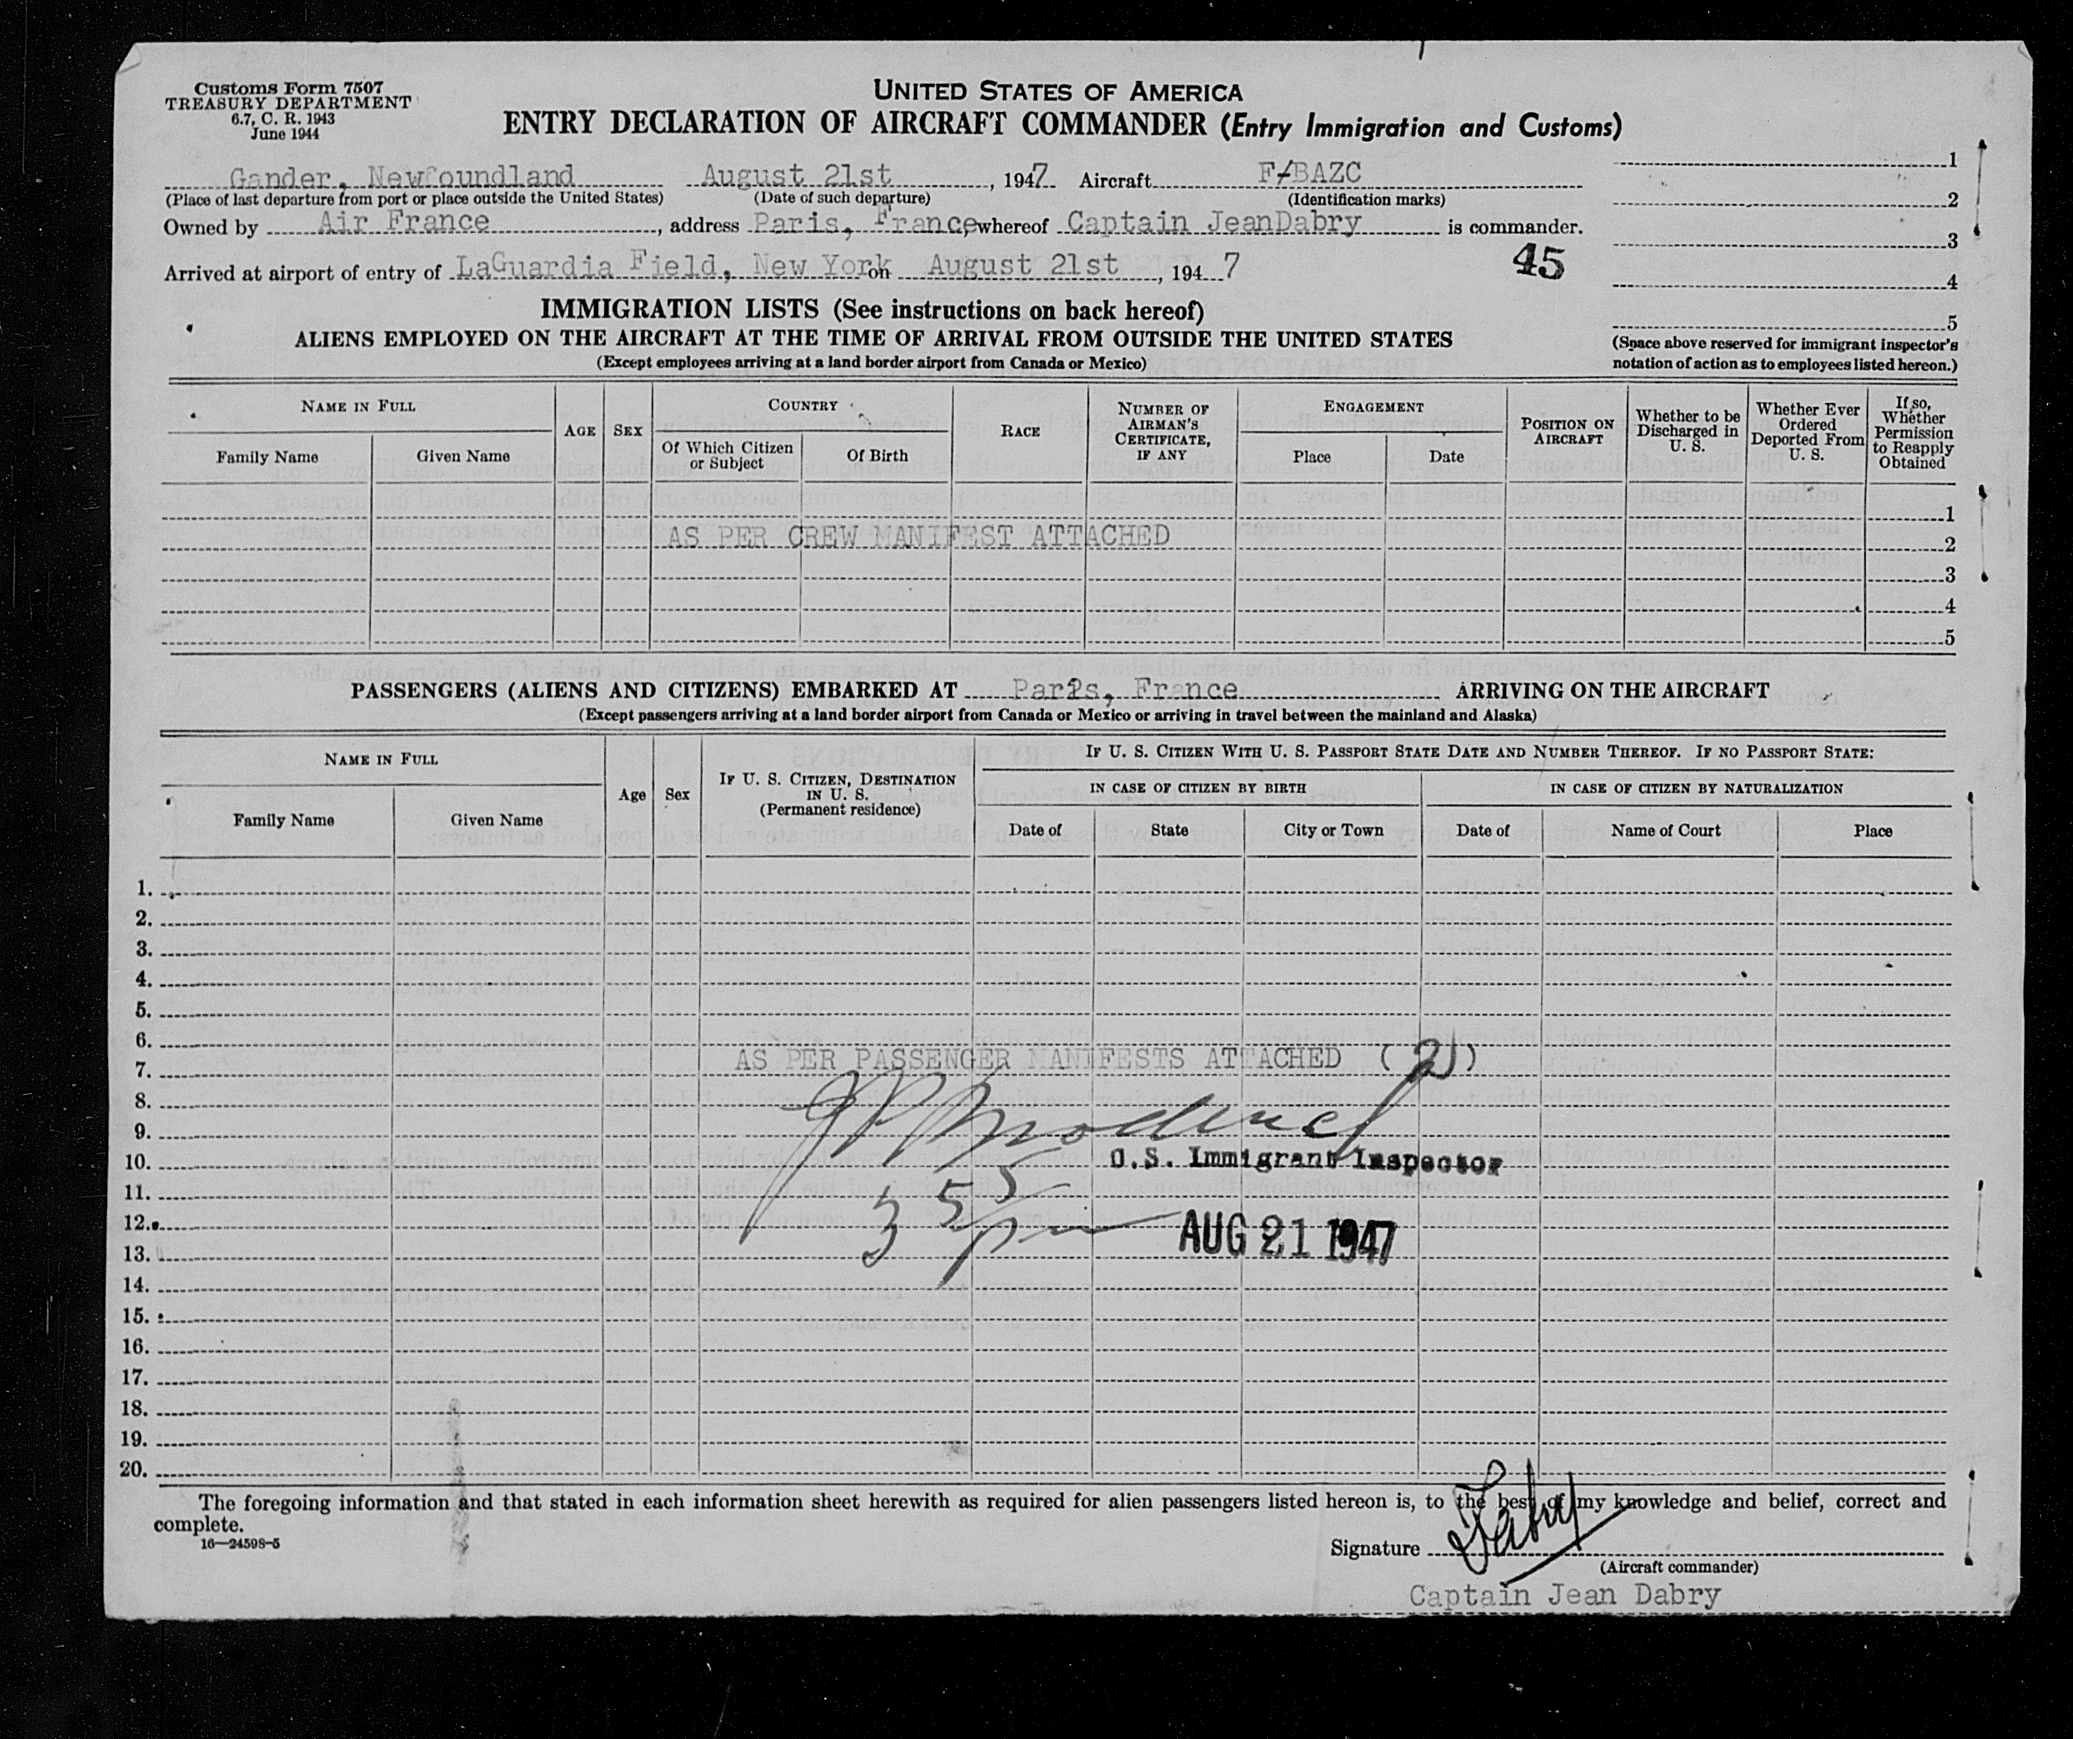 Customs Form 7507
TREASURY DEPARTMENT
6.7, C. R. 1943
June 1944
UNITED STATES OF AMERICA
ENTRY DECLARATION OF AIRCRAFT COMMANDER (Entry Immigration and Customs)
Gander, Newfoundland August 21st, 1947 Aircraft F-BAZC
(Place of last departure from port or place outside the United States) (Date of such departure) (Identification marks)
Owned by Air France, address Paris, France, whereof Captain JeanDabry is commander.
Arrived at airport of entry of LaGuardia Field, New York on August 21st, 1947
45
1
2
3
4
5
(Space above reserved for immigrant inspector's
notation of action as to employees listed hereon.)
IMMIGRATION LISTS (See instructions on back hereof)
ALIENS EMPLOYED ON THE AIRCRAFT AT THE TIME OF ARRIVAL FROM OUTSIDE THE UNITED STATES
(Except employees arriving at a land border airport from Canada or Mexico)
NAME IN FULL
Family Name Given Name
AGE
SEX
COUNTRY
Of Which Citizen or Subject
Of Birth
RACE
NUMBER OF AIRMAN'S CERTIFICATE, IF ANY
ENGAGEMENT
Place Date
POSITION ON AIRCRAFT
Whether to be Discharged in U. S.
Whether Ever Ordered Deported From U. S.
If so, Whether Permission to Reapply Obtained
1
AS PER CREW MANIFEST ATTACHED 2
3
4
5
PASSENGERS (ALIENS AND CITIZENS) EMBARKED AT Paris, France ARRIVING ON THE AIRCRAFT
(Except passengers arriving at a land border airport from Canada or Mexico or arriving in travel between the mainland and Alaska)
NAME IN FULL
Family Name Given Name
Age
Sex
IF U. S. CITIZEN, DESTINATION IN U. S.
(Permanent residence)
IF U. S. CITIZEN WITH U. S. PASSPORT STATE DATE AND NUMBER THEREOF. IF NO PASSPORT STATE:
IN CASE OF CITIZEN BY BIRTH
Date of State City or Town
IN CASE OF CITIZEN BY NATURALIZATION
Date of Name of Court Place
1.
2.
3.
4.
5.
6.
AS PER PASSENGER MANIFESTS ATTACHED (2)
7.
8.
9.
10. U.S. Immigrant Inspector
11.
12. 3 55 pm AUG 21 1947
13.
14.
15.
16.
17.
18.
19.
20.
The foregoing information and that stated in each information sheet herewith as required for alien passengers listed hereon is, to the best of my knowledge and belief, correct and
complete.
16—24598-5
Signature Dabry
(Aircraft commander)
Captain Jean Dabry